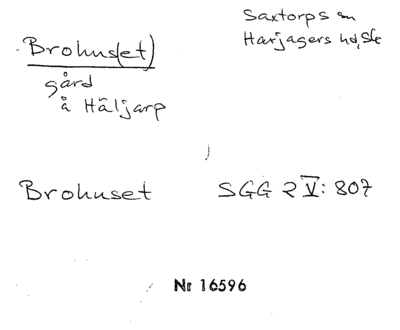 Saxtorps sn
Harjagers hd, Sk
Brohus(et)
gård
å Häljarp
Brohuset SGG 2 V: 807
Nr 16596